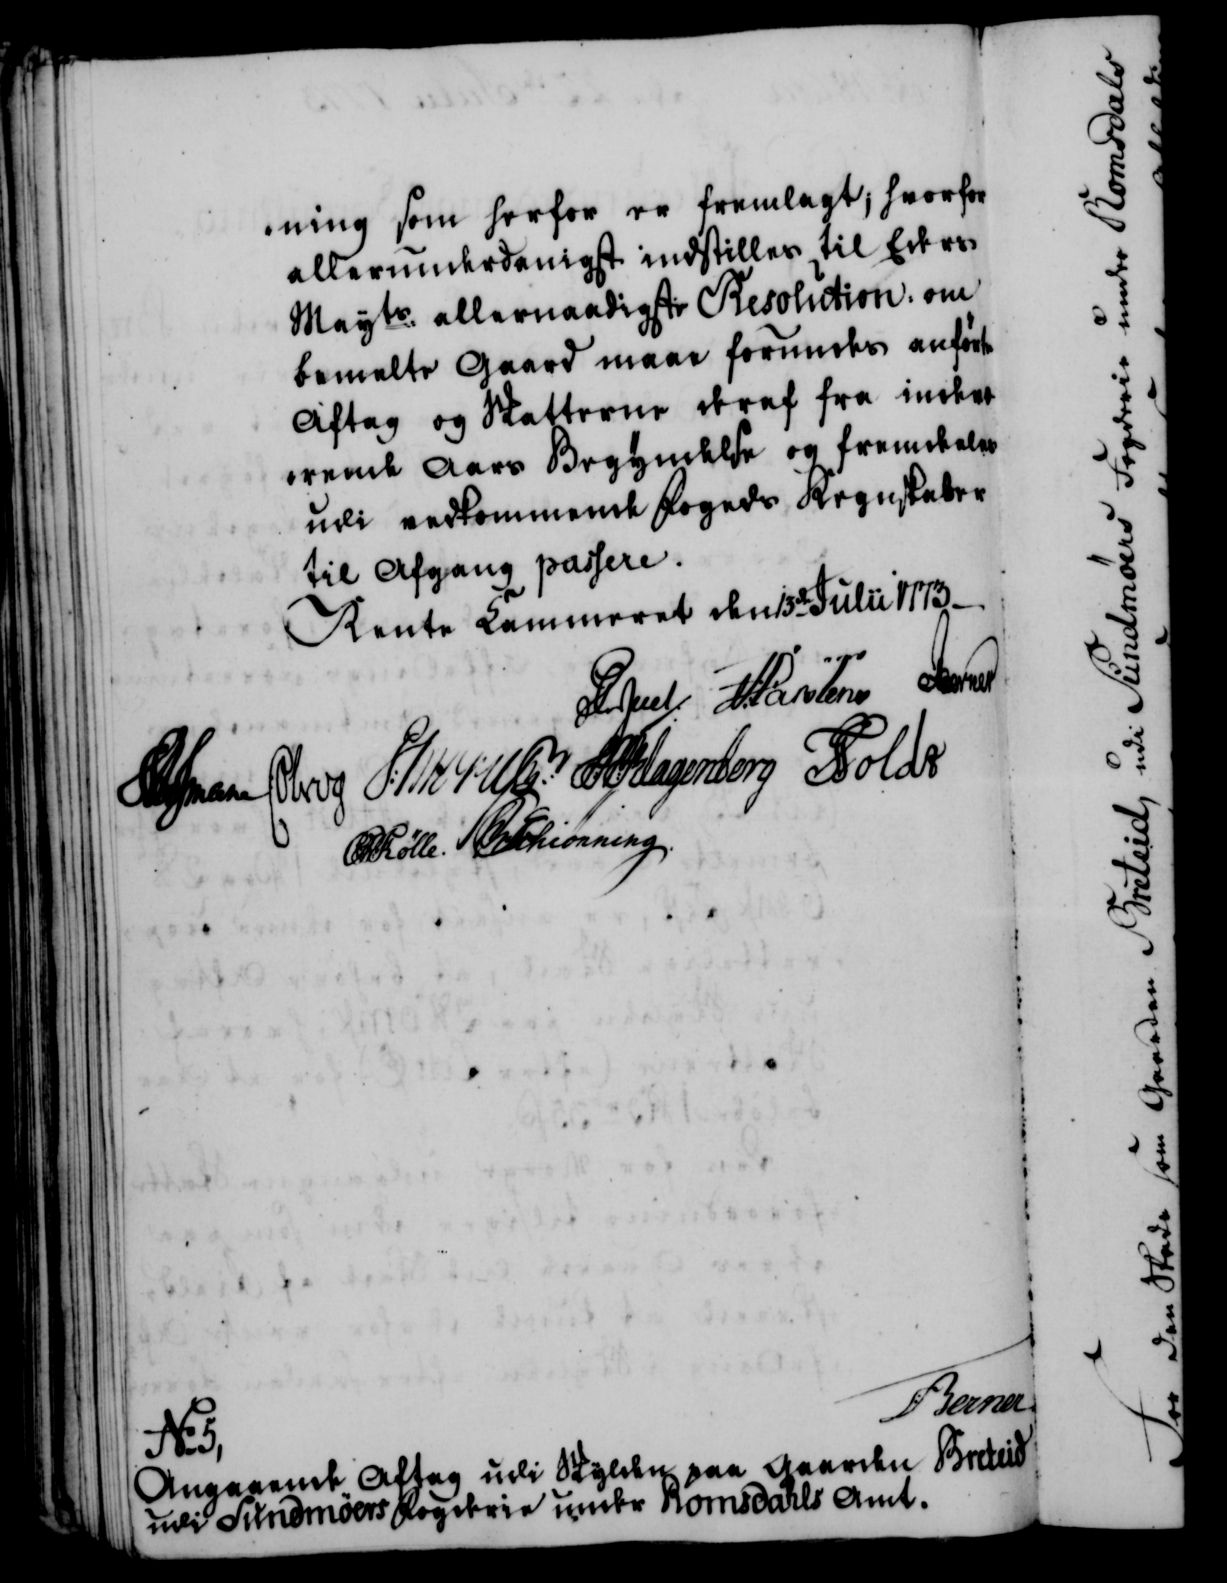 -ning som herfor er fremlagt; hvorfor
allerunderdanigst indstilles til Eders
Mayts. allernaadigste Resolution: om
bemelte Gaard maae forundes anførte
Aftag og Skatterne deraf fra indevæ-
-rende Aars Begyndelse og fremdeles
udi vedkommende Fogeds Regnskaber
til Afgang passere.
Rente Kammeret den 13de Julii 1773.
Juel. Karstens Berner
Klagenberg Holdt
Rølle. Schionning.
Berner.
No. 5,
Angaaende Aftag udi Skylden paa Gaarden Breteid
udi Sundmøers Fogderie under Romsdahls Amt.
For den Skade som Gaarden Breteid, udi Sundmøers Fogderie under Romsdals